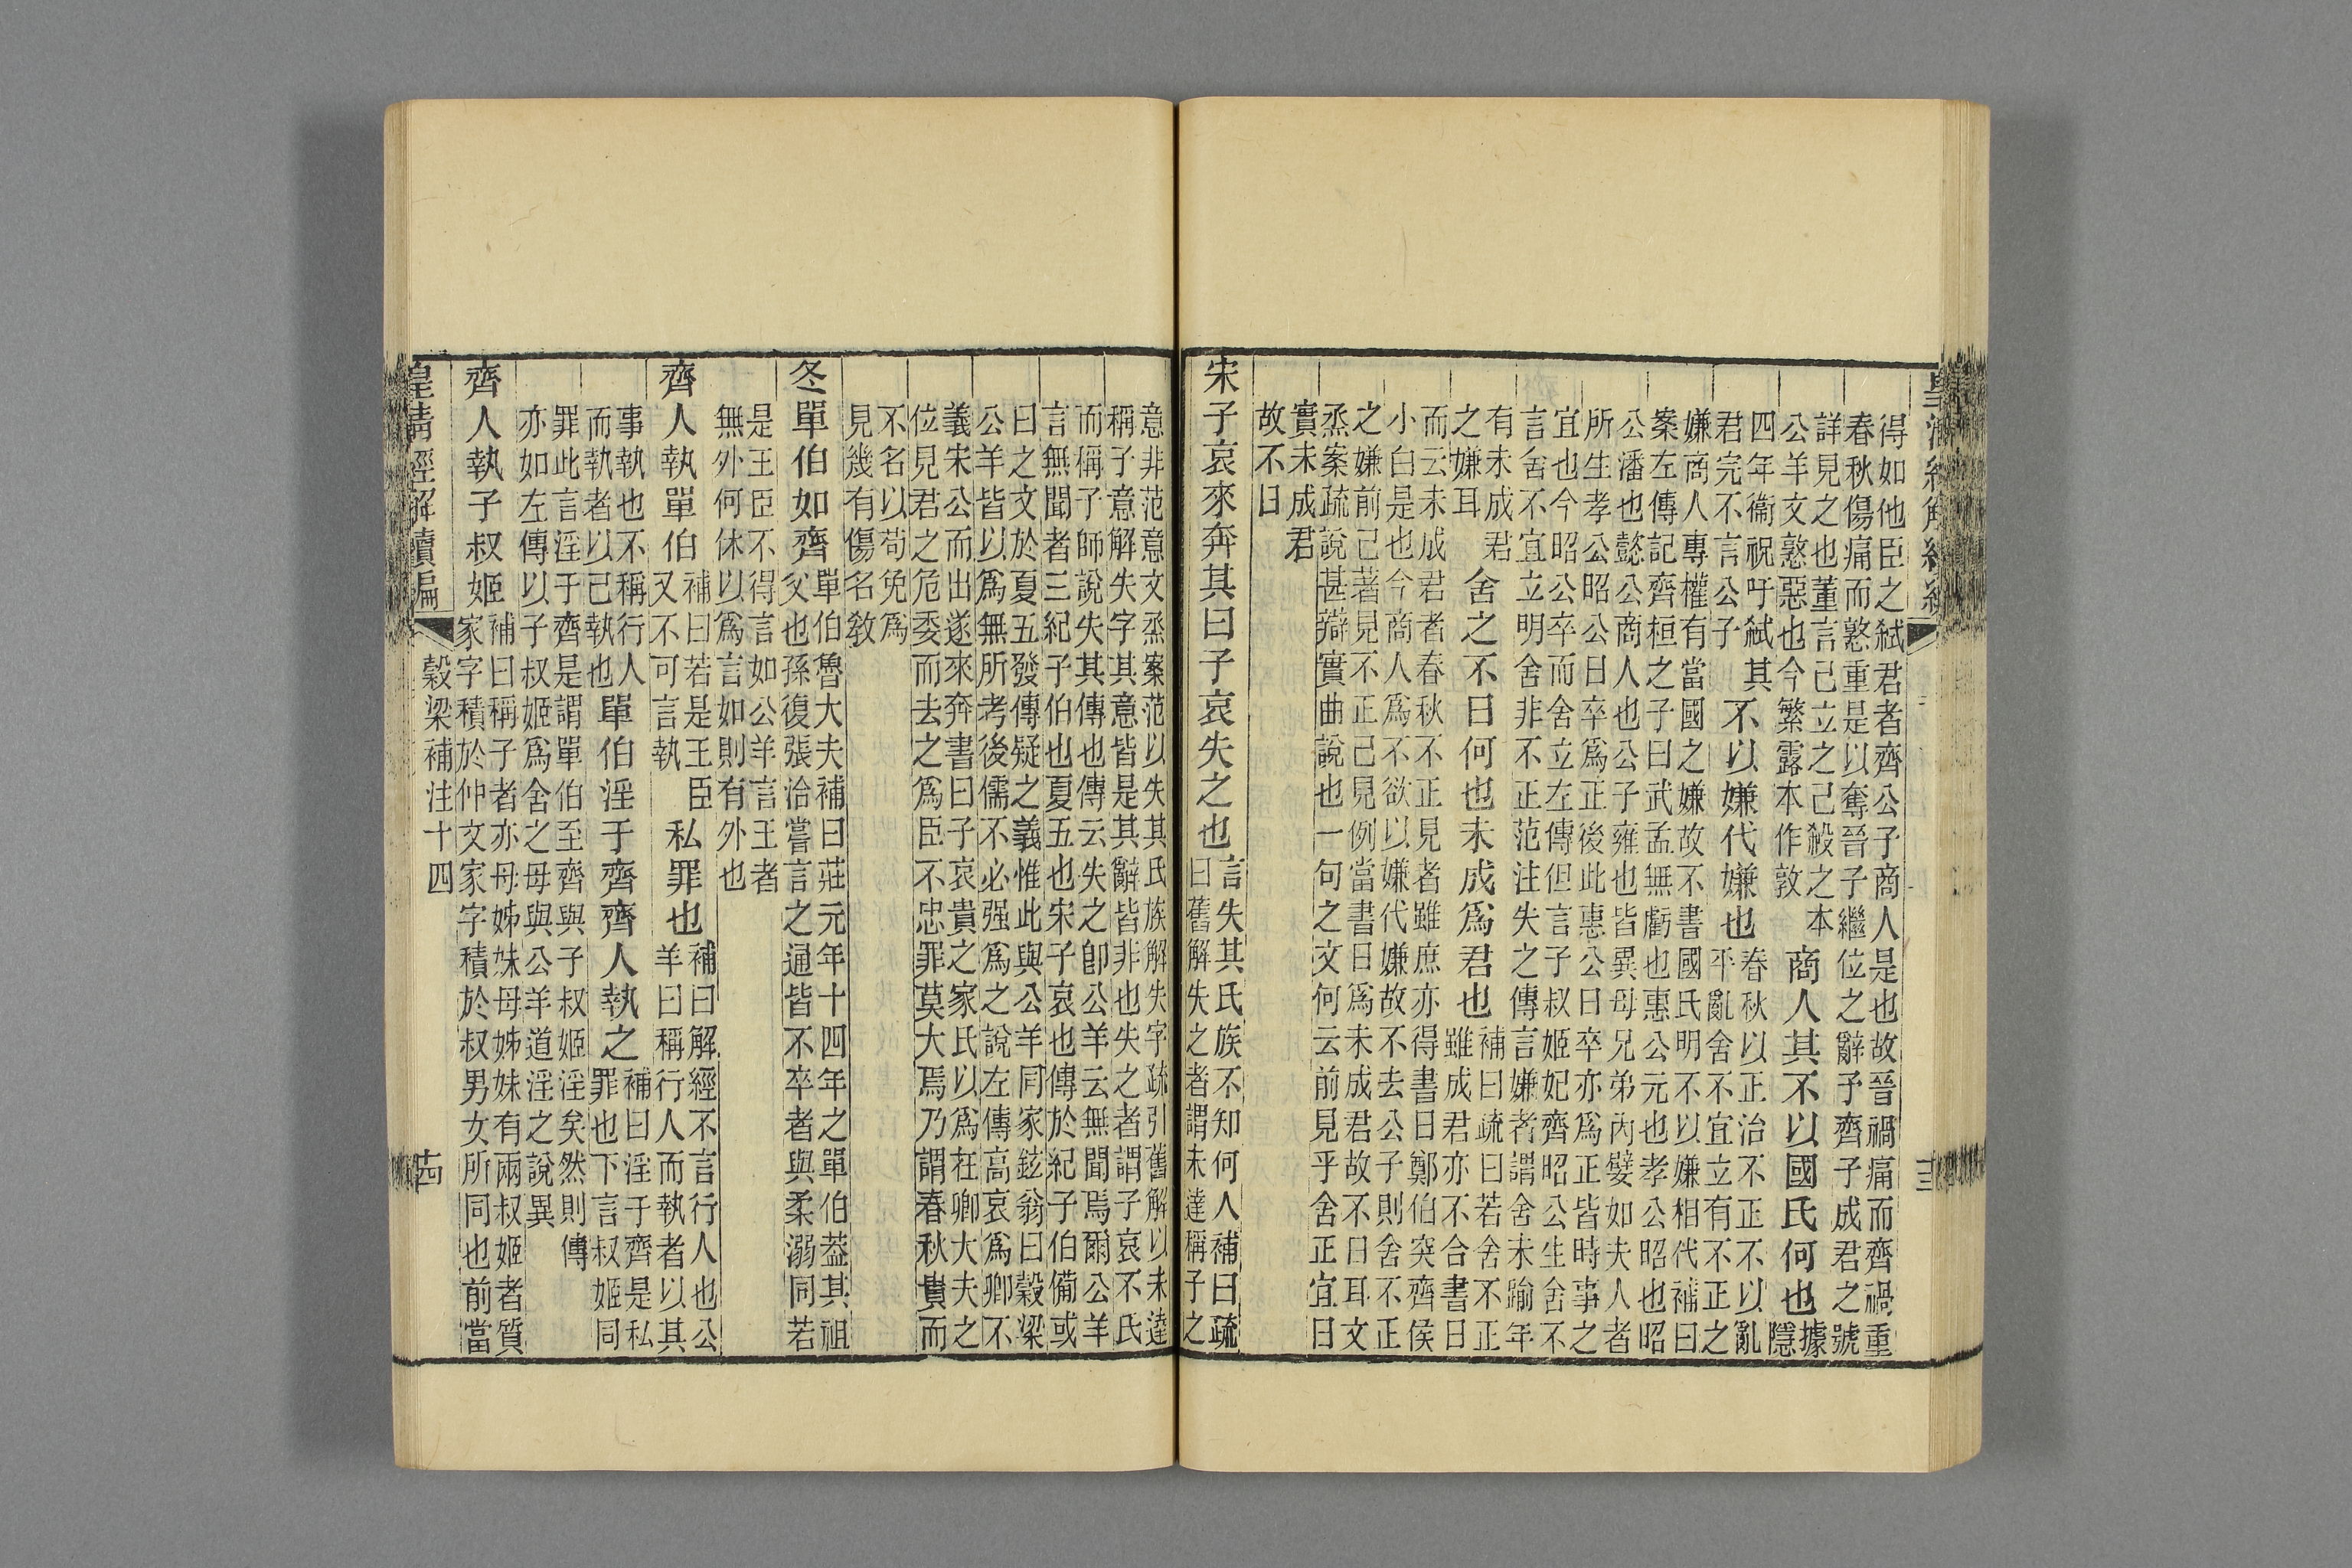 得如他臣之弑君者齊公子商人是也故晉禍痛而齊禍重
春秋傷痛而憝重是以奪晉子繼位之辭予齊子成君之號
詳見之也董言已立之已殺之本
公羊文憝惡也今繁露本作敦
商人其不以國氏何也
據
隱
四年衞祝吁弑其
君完不言公子
不以嫌代嫌也
春秋以正治不正不以亂
平亂舍不宜立有不正之
嫌商人專權有當國之嫌故不書國氏明不以嫌相代補曰
案左傳記齊桓之子曰武孟無虧也惠公元也孝公昭也昭
公潘也懿公商人也公子雍也皆異母兄弟內嬖如夫人者
所生孝公昭公日卒爲正後此惠公日卒亦爲正皆時事之
宜也今昭公卒而舍立左傳但言子叔姬妃齊昭公生舍不
言舍不宜立明舍非不正范注失之傳言嫌者謂舍未踰年
有未成君
之嫌耳
舍之不日何也未成爲君也
補曰疏曰若舍不正
雖成君亦不合書日
而云未成君者春秋不正見者雖庶亦得書日鄭伯突齊侯
小白是也今商人爲不欲以嫌代嫌故不去公子則舍不正
之嫌前已著見不正已見例當書日爲未成君故不日耳文
烝案疏說甚辯實曲說也一句之文何云前見乎舍正宜日
實未成君
故不日
宋子哀來奔其曰子哀失之也
言失其氏族不知何人補曰疏
曰舊解失之者謂未達稱子之
意非范意文烝案范以失其氏族解失字疏引舊解以未達
稱子意解失字其意皆是其辭皆非也失之者謂子哀不氏
而稱子師說失其傳也傳云失之卽公羊云無聞焉爾公羊
言無聞者三紀子伯也夏五也宋子哀也傳於紀子伯備或
曰之文於夏五發傳疑之義惟此與公羊同家鉉翁曰穀梁
公羊皆以爲無所考後儒不必强爲之說左傳高哀爲卿不
義宋公而出遂來奔書曰子哀貴之家氏以爲在卿大夫之
位見君之危委而去之爲臣不忠罪莫大焉乃謂春秋貴而
不名以苟免爲
見幾有傷名敎
冬單伯如齊
單伯魯大夫補曰莊元年十四年之單伯葢其祖
父也孫復張洽嘗言之通皆不卒者與柔溺同若
是王臣不得言如公羊言王者
無外何休以爲言如則有外也
齊人執單伯
補曰若是王臣
又不可言執
私罪也
補曰解經不言行人也公
羊曰稱行人而執者以其
事執也不稱行人
而執者以己執也
單伯淫于齊齊人執之
補曰淫于齊是私
罪也下言叔姬同
罪此言淫于齊是謂單伯至齊與子叔姬淫矣然則傳
亦如左傳以子叔姬爲舍之母與公羊道淫之說異
齊人執子叔姬
補曰稱子者亦母姊妹母姊妹有兩叔姬者質
家字積於仲文家字積於叔男女所同也前當
皇清經解續編
穀梁補注十四